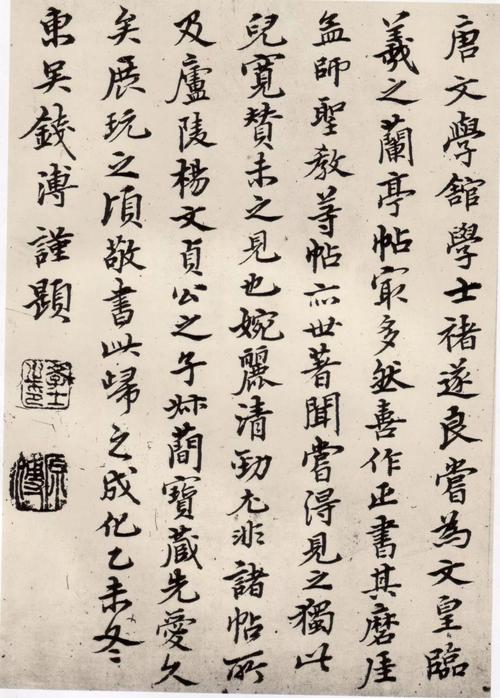 唐文學舘學士禇遂良嘗為文皇臨
羲之蘭亭帖㝡多然喜作正書其磨崖
孟師聖教等帖亦世著聞嘗得見之獨此
兒寬贊未之見也婉麗清勁尤非諸帖所
及廬陵楊文貞公之子叔蕳寶蔵先愛久
矣展玩之頃敬書此歸之成化乙未冬
東吳錢溥謹題
學士之印
原溥